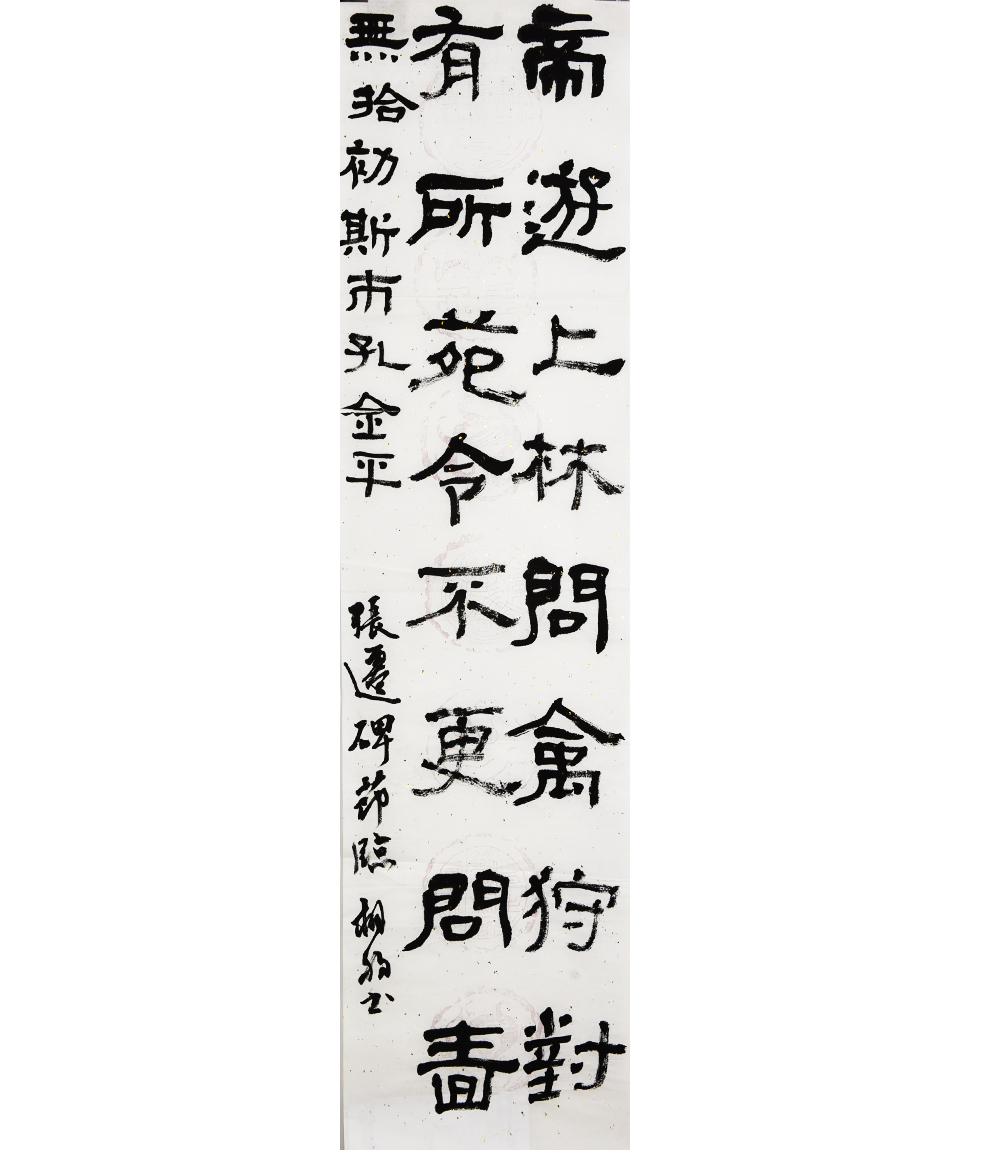 帝遊上林問禽狩對
有所苑令不更問嗇
無拾初斯市孔金平
張遷碑節臨